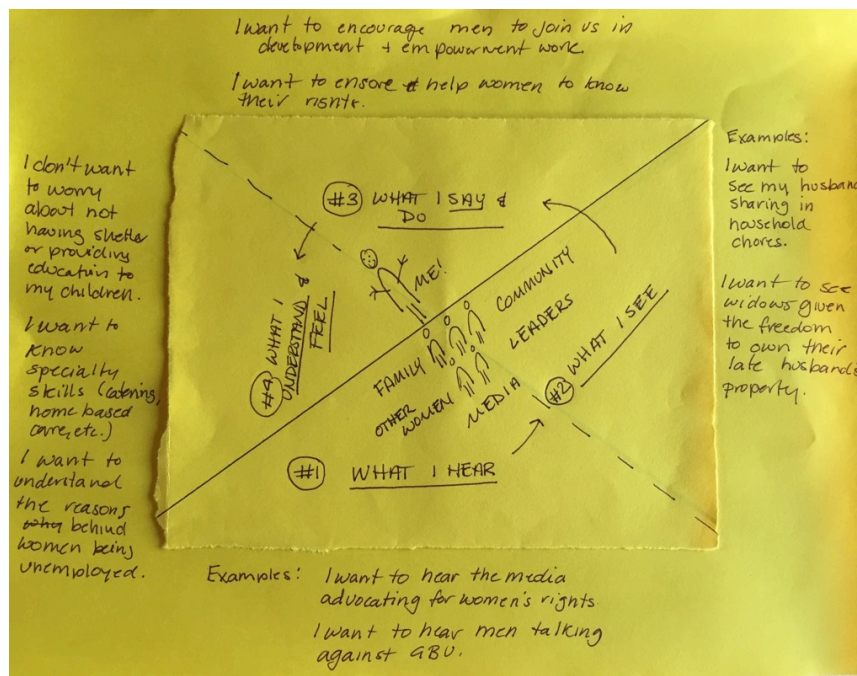 I want to encourage men to join us in
development + empowerment work.
I want to ensure help women to know
their rights.
I don't want
to worry
about not
having shelter
or providing
education to
my children.
I want to
know
specialty
skills (catering,
home based
care, etc.)
I want to
understand
the reasons
why behind
women being
unemployed.
#3 WHAT I SAY &
DO
ME!
#4 WHAT I
UNDERSTAND &
FEEL
COMMUNITY
LEADERS
FAMILY
OTHER
WOMEN
MEDIA
#2 WHAT I SEE
#1 WHAT I HEAR
Examples:
I want to
see my husband
sharing in
household
chores.
I want to see
widows given
the freedom
to own their
late husbands
property.
Examples: I want to hear the media
advocating for women's rights
I want to hear men talking
against GBV.